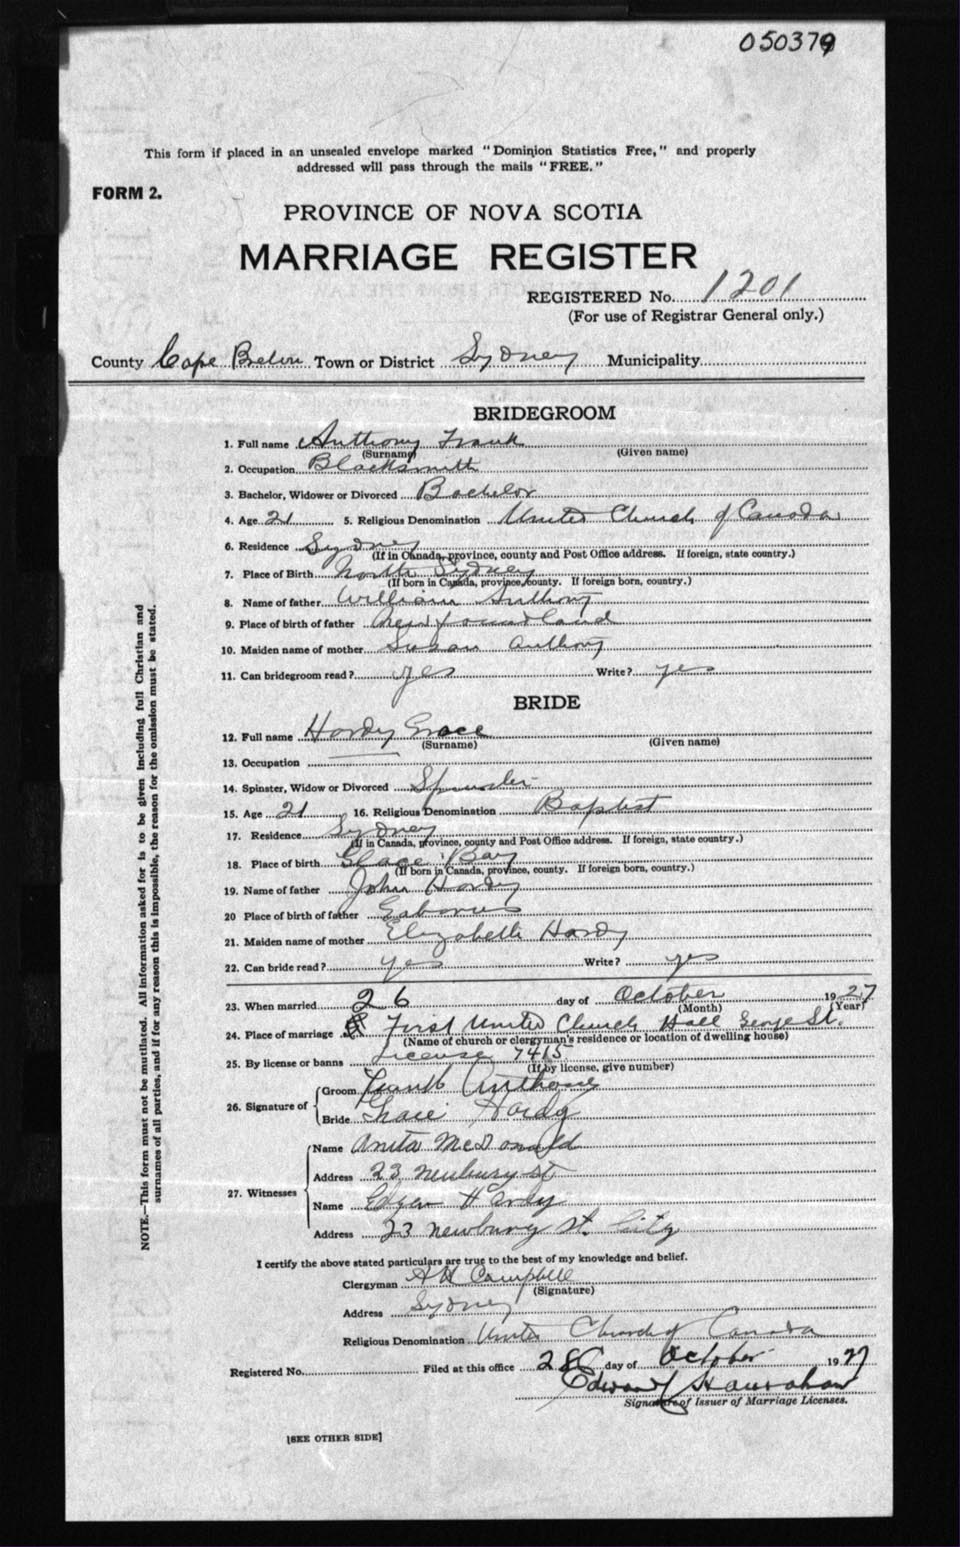 050379
This form if placed in an unsealed envelope marked "Dominion Statistics Free," and properly
addressed will pass through the mails "FREE."
FORM 2.
PROVINCE OF NOVA SCOTIA
MARRIAGE REGISTER
REGISTERED No. 1201
(For use of Registrar General only.)
County Cape Breton Town or District Sydney Municipality
BRIDEGROOM
1. Full name Anthony Frank
(Surname) (Given name)
2. Occupation Blacksmith
3. Bachelor, Widower or Divorced Bachelor
4. Age 21 5. Religious Denomination United Church of Canada
6. Residence Sydney
(If in Canada, province, county and Post Office address. If foreign, state country.)
7. Place of Birth North Sydney
(If born in Canada, province, county. If foreign born, country.)
8. Name of father William Anthony
9. Place of birth of father Newfoundland
10. Maiden name of mother Susan Anthony
11. Can bridegroom read? yes Write? yes
BRIDE
12. Full name Hardy Grace
(Surname) (Given name)
13. Occupation
14. Spinster, Widow or Divorced Spinster
15. Age 21 16. Religious Denomination Baptist
17. Residence Sydney
(If in Canada, province, county and Post Office address. If foreign, state country.)
18. Place of birth Glace Bay
(If born in Canada, province, county. If foreign born, country.)
19. Name of father John Hardy
20 Place of birth of father Gabarus
21. Maiden name of mother Elizabeth Hardy
22. Can bride read? yes Write? yes
23. When married 26 day of October 1927
(Month) (Year)
24. Place of marriage First United Church Hall George St.
(Name of church or clergyman's residence or location of dwelling house)
25. By license or banns License 7415
(If by license, give number)
26. Signature of Groom Frank Anthony
Bride Grace Hardy
27. Witnesses Name Anita McDonald
Address 23 Newbury St
Name Edgar Hardy
Address 23 Newbury St. City
I certify the above stated particulars are true to the best of my knowledge and belief.
Clergyman A H Campbell
(Signature)
Address Sydney
Religious Denomination United Church of Canada
Registered No. Filed at this office 28 day of October 1927
Edward Hanrahan
Signature of Issuer of Marriage Licenses.
[SEE OTHER SIDE]
NOTE.—This form must not be mutilated. All information asked for is to be given including full Christian and
surnames of all parties, and if for any reason this is impossible, the reason for the omission must be stated.